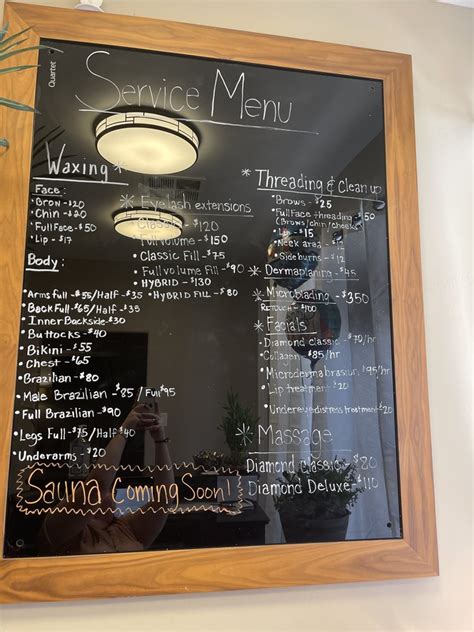 Quartet
Service Menu
Waxing
Face:
• Brow - $20
• Chin - $20
• Full Face - $50
• Lip - $17
Body:
• Arms full - $55/Half - $35
• Back Full - $65/Half - $35
• Inner Backside - $30
• Buttocks - $40
• Bikini - $55
• Chest - $65
• Brazilian - $80
• Male Brazilian - $85 / Full $95
• Full Brazilian - $90
• Legs Full - $75/Half $40
• Underarms - $20
Sauna Coming Soon!
* Eyelash extensions
• Classic - $120
• Full volume - $150
• Classic Fill - $75
• Full volume Fill - $90
• HYBRID - $130
• HYBRID FILL - $80
* Threading & Clean up
• Brows - $25
• Full Face threading - $50
(Brows/chin/cheeks)
• Lip - $15
• Neck area - $
• Sideburns - $12
* Dermaplaning - $45
* Microblading - $350
Retouch - $100
* Facials
• Diamond classic - $70/hr
• Collagen - $85/hr
• Microdermabrasion - $95/hr
• Lip treatment - $20
• Undereye distress treatment $20
* Massage
Diamond Classic - $80
Diamond Deluxe - $110